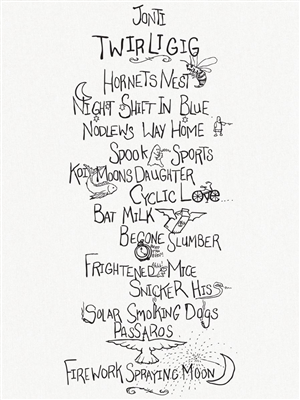 JONTI
TWIRLIGIG
HORNETS NEST
NIGHT SHIFT IN BLUE
NODLEWS WAY HOME
SPOOK SPORTS
KOI MOONS DAUGHTER
CYCLIC LOO
BAT MILK
BEGONE SLUMBER
FRIGHTENED MICE
SNICKER HISS
SOLAR SMOKING DOGS
PASSAROS
FIREWORK SPRAYING MOON